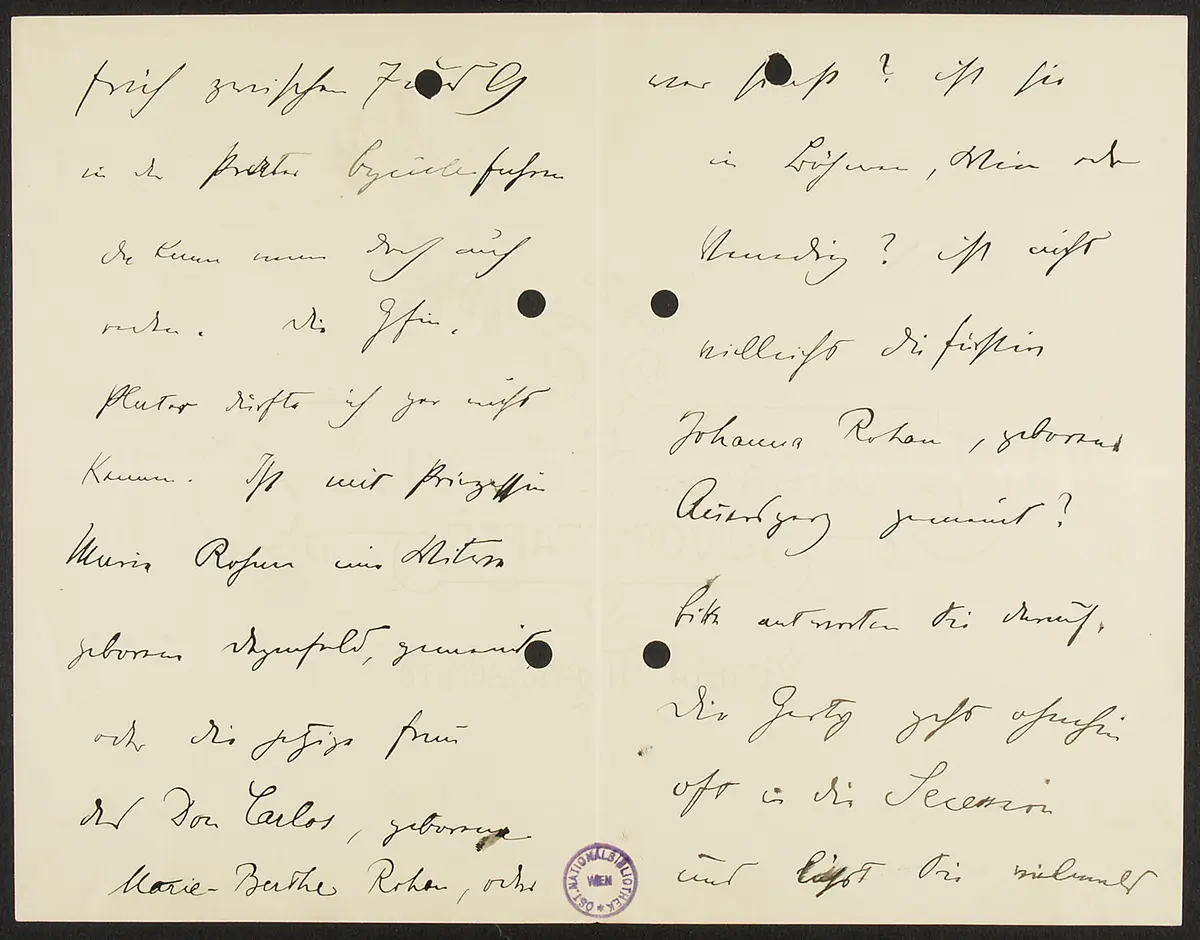 früh zwischen 7 und 9
in den Prater bycicle fahren
da kann man doch auch
reden. Die Gfin.
Plater dürfte ich gar nicht
kennen. Ist mit Prinzessin
Maria Rohan eine Witwe
geborene Degenfeld, gemeint
oder die jetzige Frau
des Don Carlos, geborene
Marie-Berthe Rohan, oder
wer sonst? ist sie
in Böhmen, Wien oder
Venedig? ist nicht
vielleicht die Fürstin
Johanna Rohan, geborene
Auersperg gemeint?
bitte antworten Sie darauf.
Die Gerty geht ohnehin
oft in die Secession
und läßt Sie vielmals
ÖST. NATIONALBIBLIOTHEK
WIEN